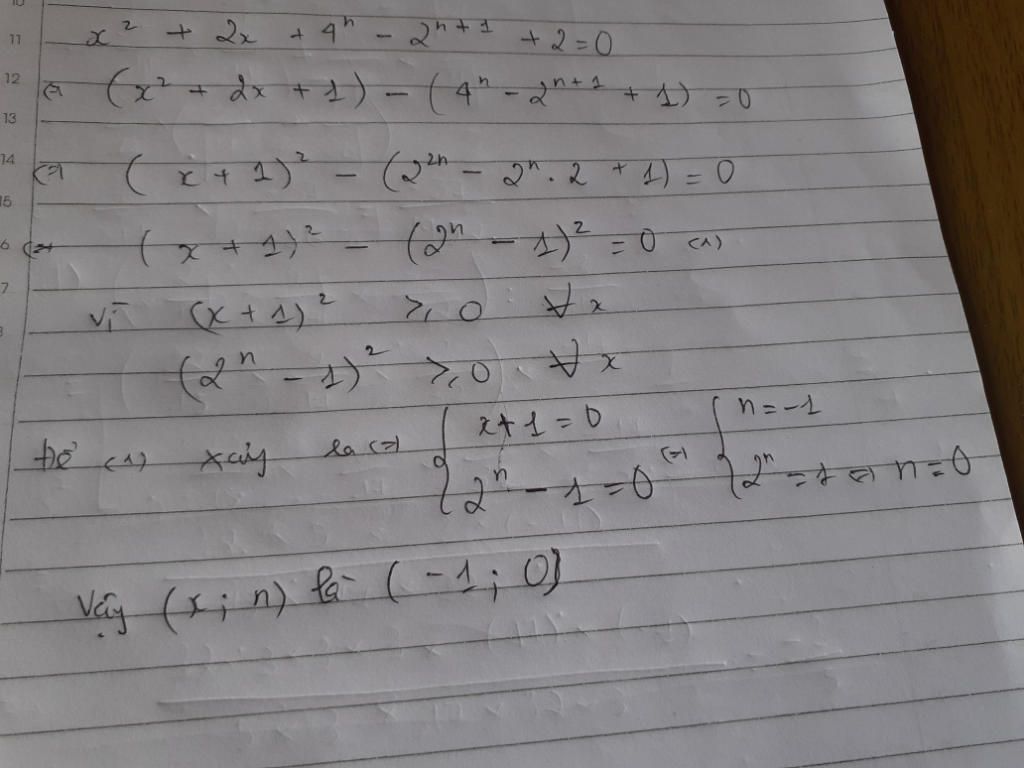 11 x² + 2x + 4ⁿ - 2ⁿ⁺¹ + 2 = 0
12 <=> (x² + 2x + 1) - (4ⁿ - 2ⁿ⁺¹ + 1) = 0
13
14 <=> (x + 1)² - (2²ⁿ - 2ⁿ . 2 + 1) = 0
15
6 <=> (x + 1)² - (2ⁿ - 1)² = 0 (1)
7 vì (x + 1)² ≥ 0 ∀ x
8 (2ⁿ - 1)² ≥ 0 ∀ x
Để (1) xảy ra <=> { x + 1 = 0 <=> { n = -1
2ⁿ - 1 = 0 2ⁿ = 1 <=> n = 0
Vậy (x ; n) là (-1 ; 0)